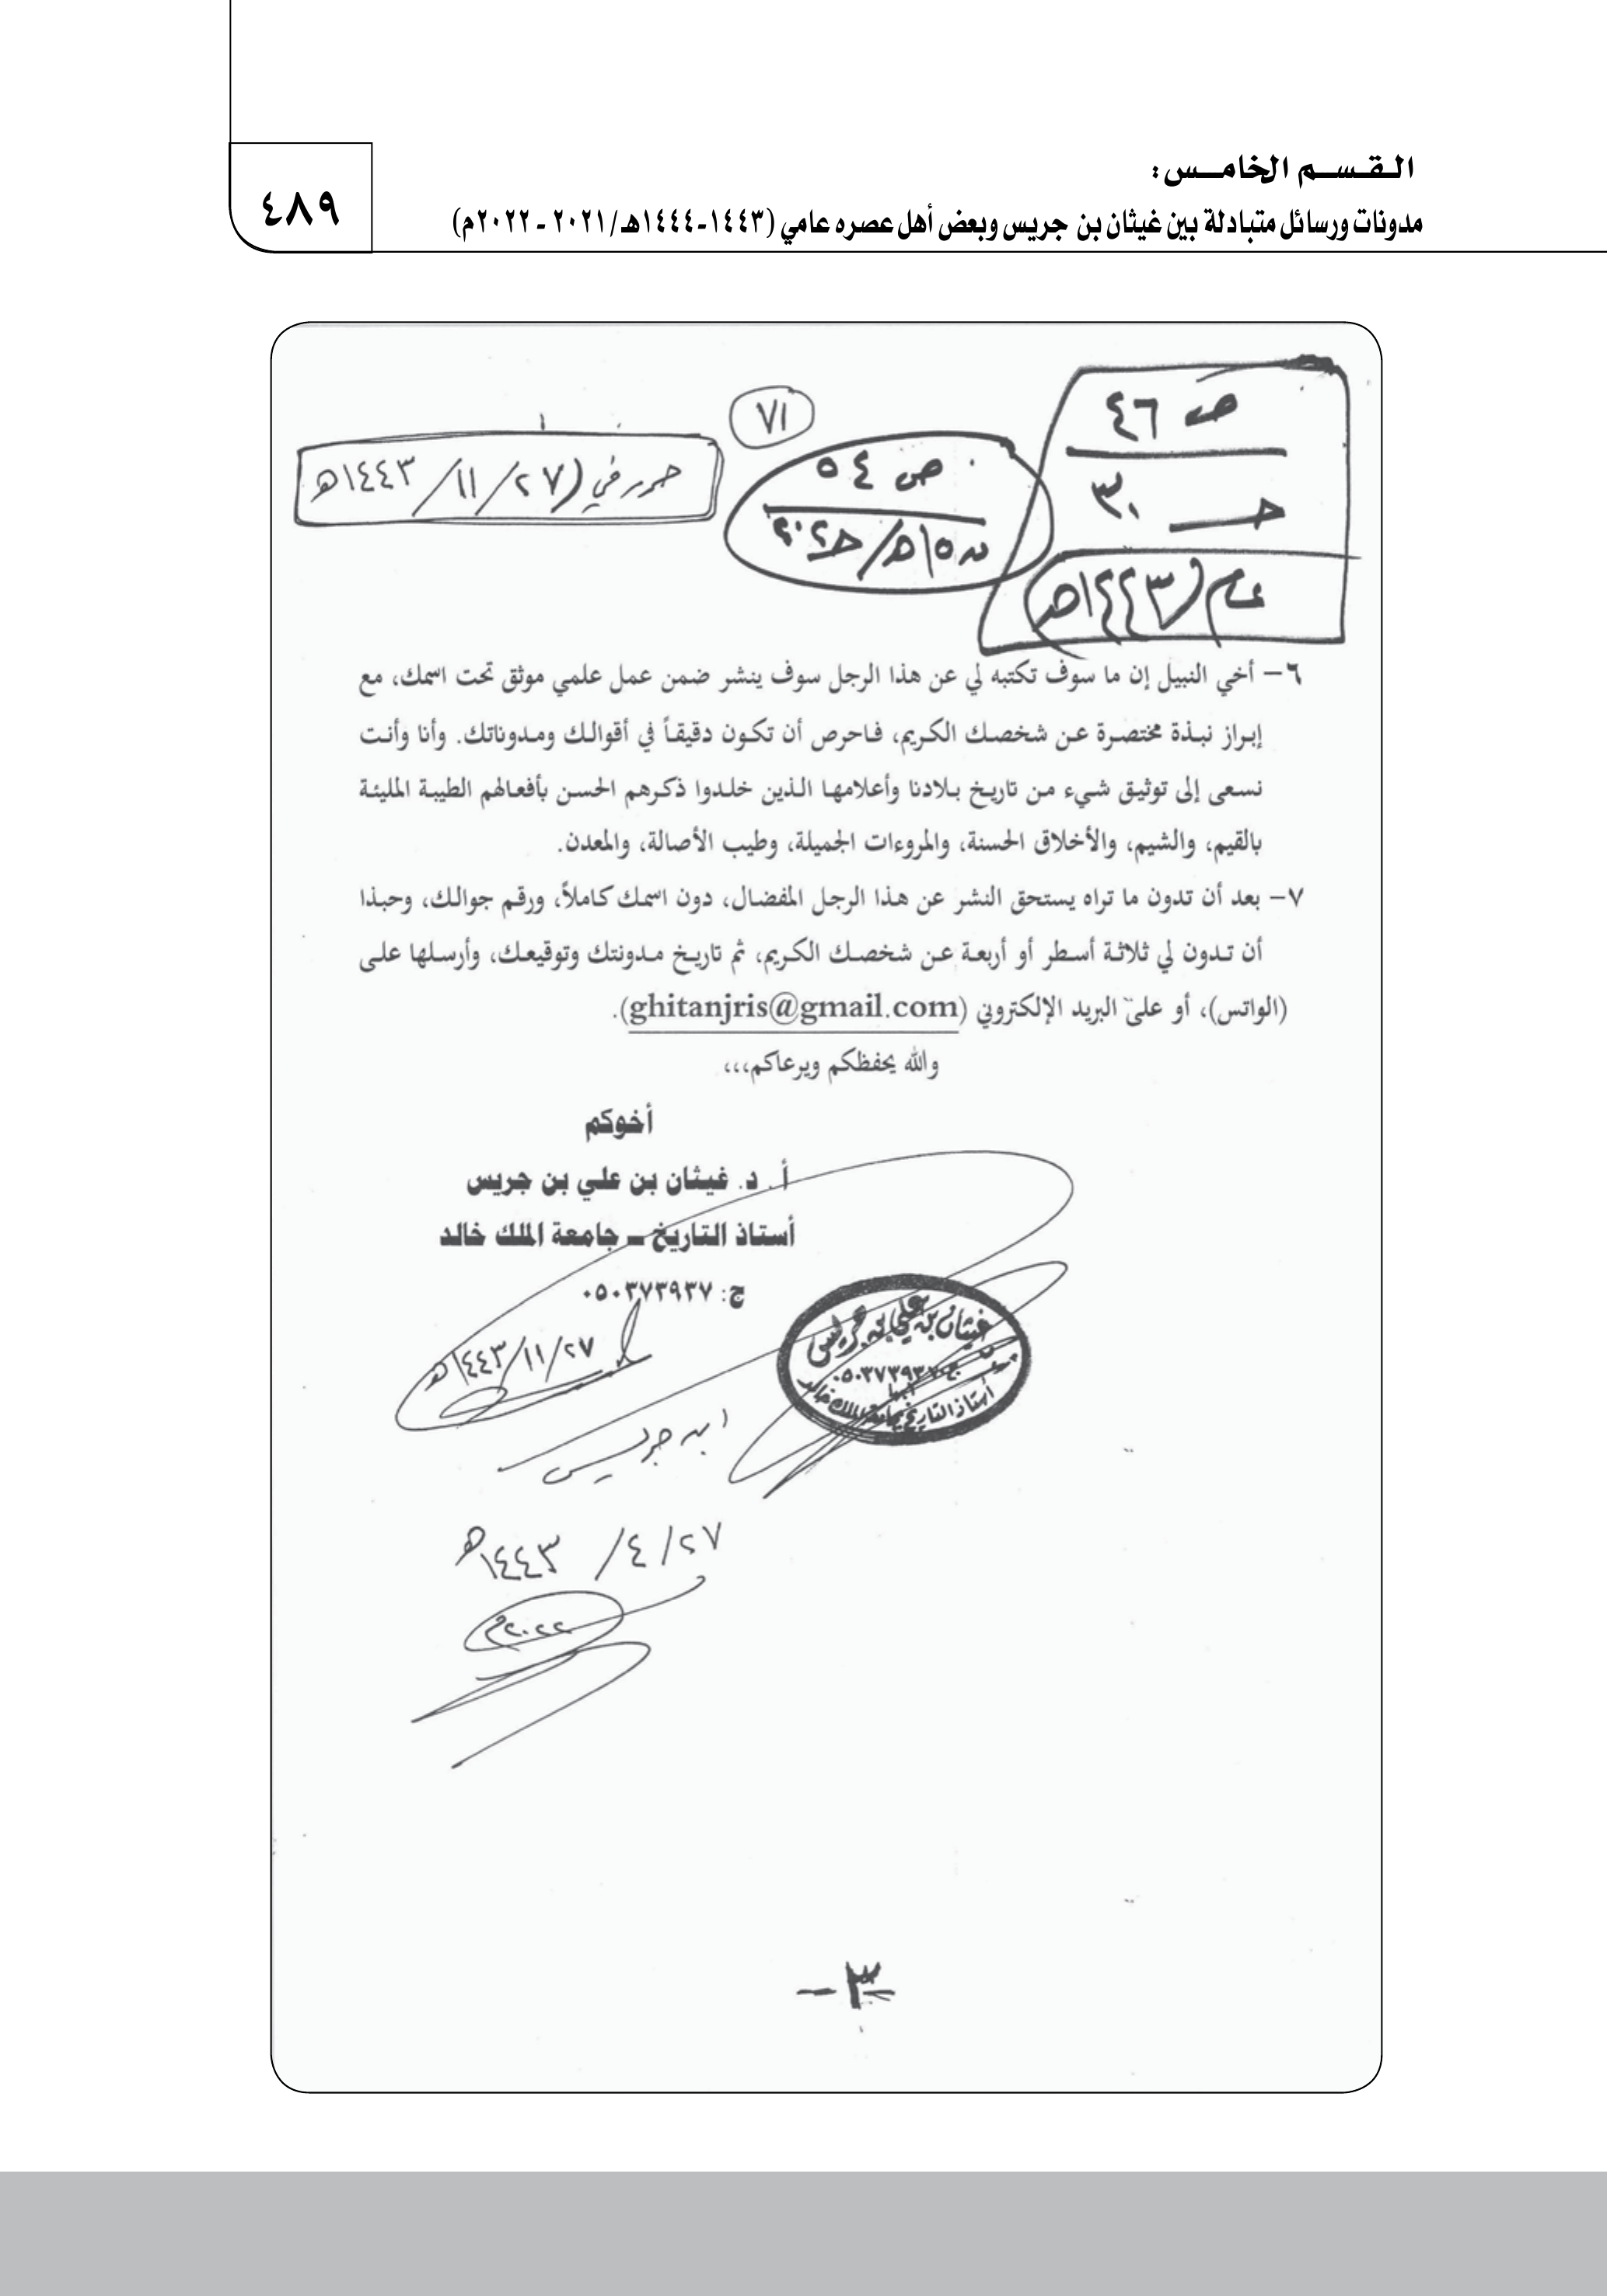 القسم الخامس:
مدونات ورسائل متبادلة بين غيثان بن جريس وبعض أهل عصره عامي (١٤٤٣-١٤٤٤هـ/٢٠٢١ - ٢٠٢٢م)
٤٨٩
ص ٤٦
حـ ٣٠
عام (١٤٤٣هـ)
٧١
ص ٥٤
حرر في (٢٧/ ١١/ ١٤٤٣هـ
٦- أخي النبيل إن ما سوف تكتبه لي عن هذا الرجل سوف ينشر ضمن عمل علمي موثق تحت اسمك، مع
إبراز نبذة مختصرة عن شخصك الكريم، فاحرص أن تكون دقيقاً في أقوالك ومدوناتك. وأنا وأنت
نسعى إلى توثيق شيء من تاريخ بلادنا وأعلامها الذين خلدوا ذكرهم الحسن بأفعالهم الطيبة المليئة
بالقيم، والشيم، والأخلاق الحسنة، والمروءات الجميلة، وطيب الأصالة، والمعدن.
٧- بعد أن تدون ما تراه يستحق النشر عن هذا الرجل المفضال، دون اسمك كاملاً، ورقم جوالك، وحبذا
أن تدون لي ثلاثة أسطر أو أربعة عن شخصك الكريم، ثم تاريخ مدونتك وتوقيعك، وأرسلها على
(الواتس)، أو على البريد الإلكتروني (ghitanjris@gmail.com).
والله يحفظكم ويرعاكم،،،
أخوكم
أ. د. غيثان بن علي بن جريس
أستاذ التاريخ – جامعة الملك خالد
ج: ٠٥٠٣٧٣٩٣٧
٢٧/ ١١/ ١٤٤٣هـ
غيثان بن علي بن جريس
أبها
أستاذ التاريخ بجامعة الملك خالد
ابن جريس
٢٧/ ٤/ ١٤٤٣هـ
٢٠٢٢م
-٣-